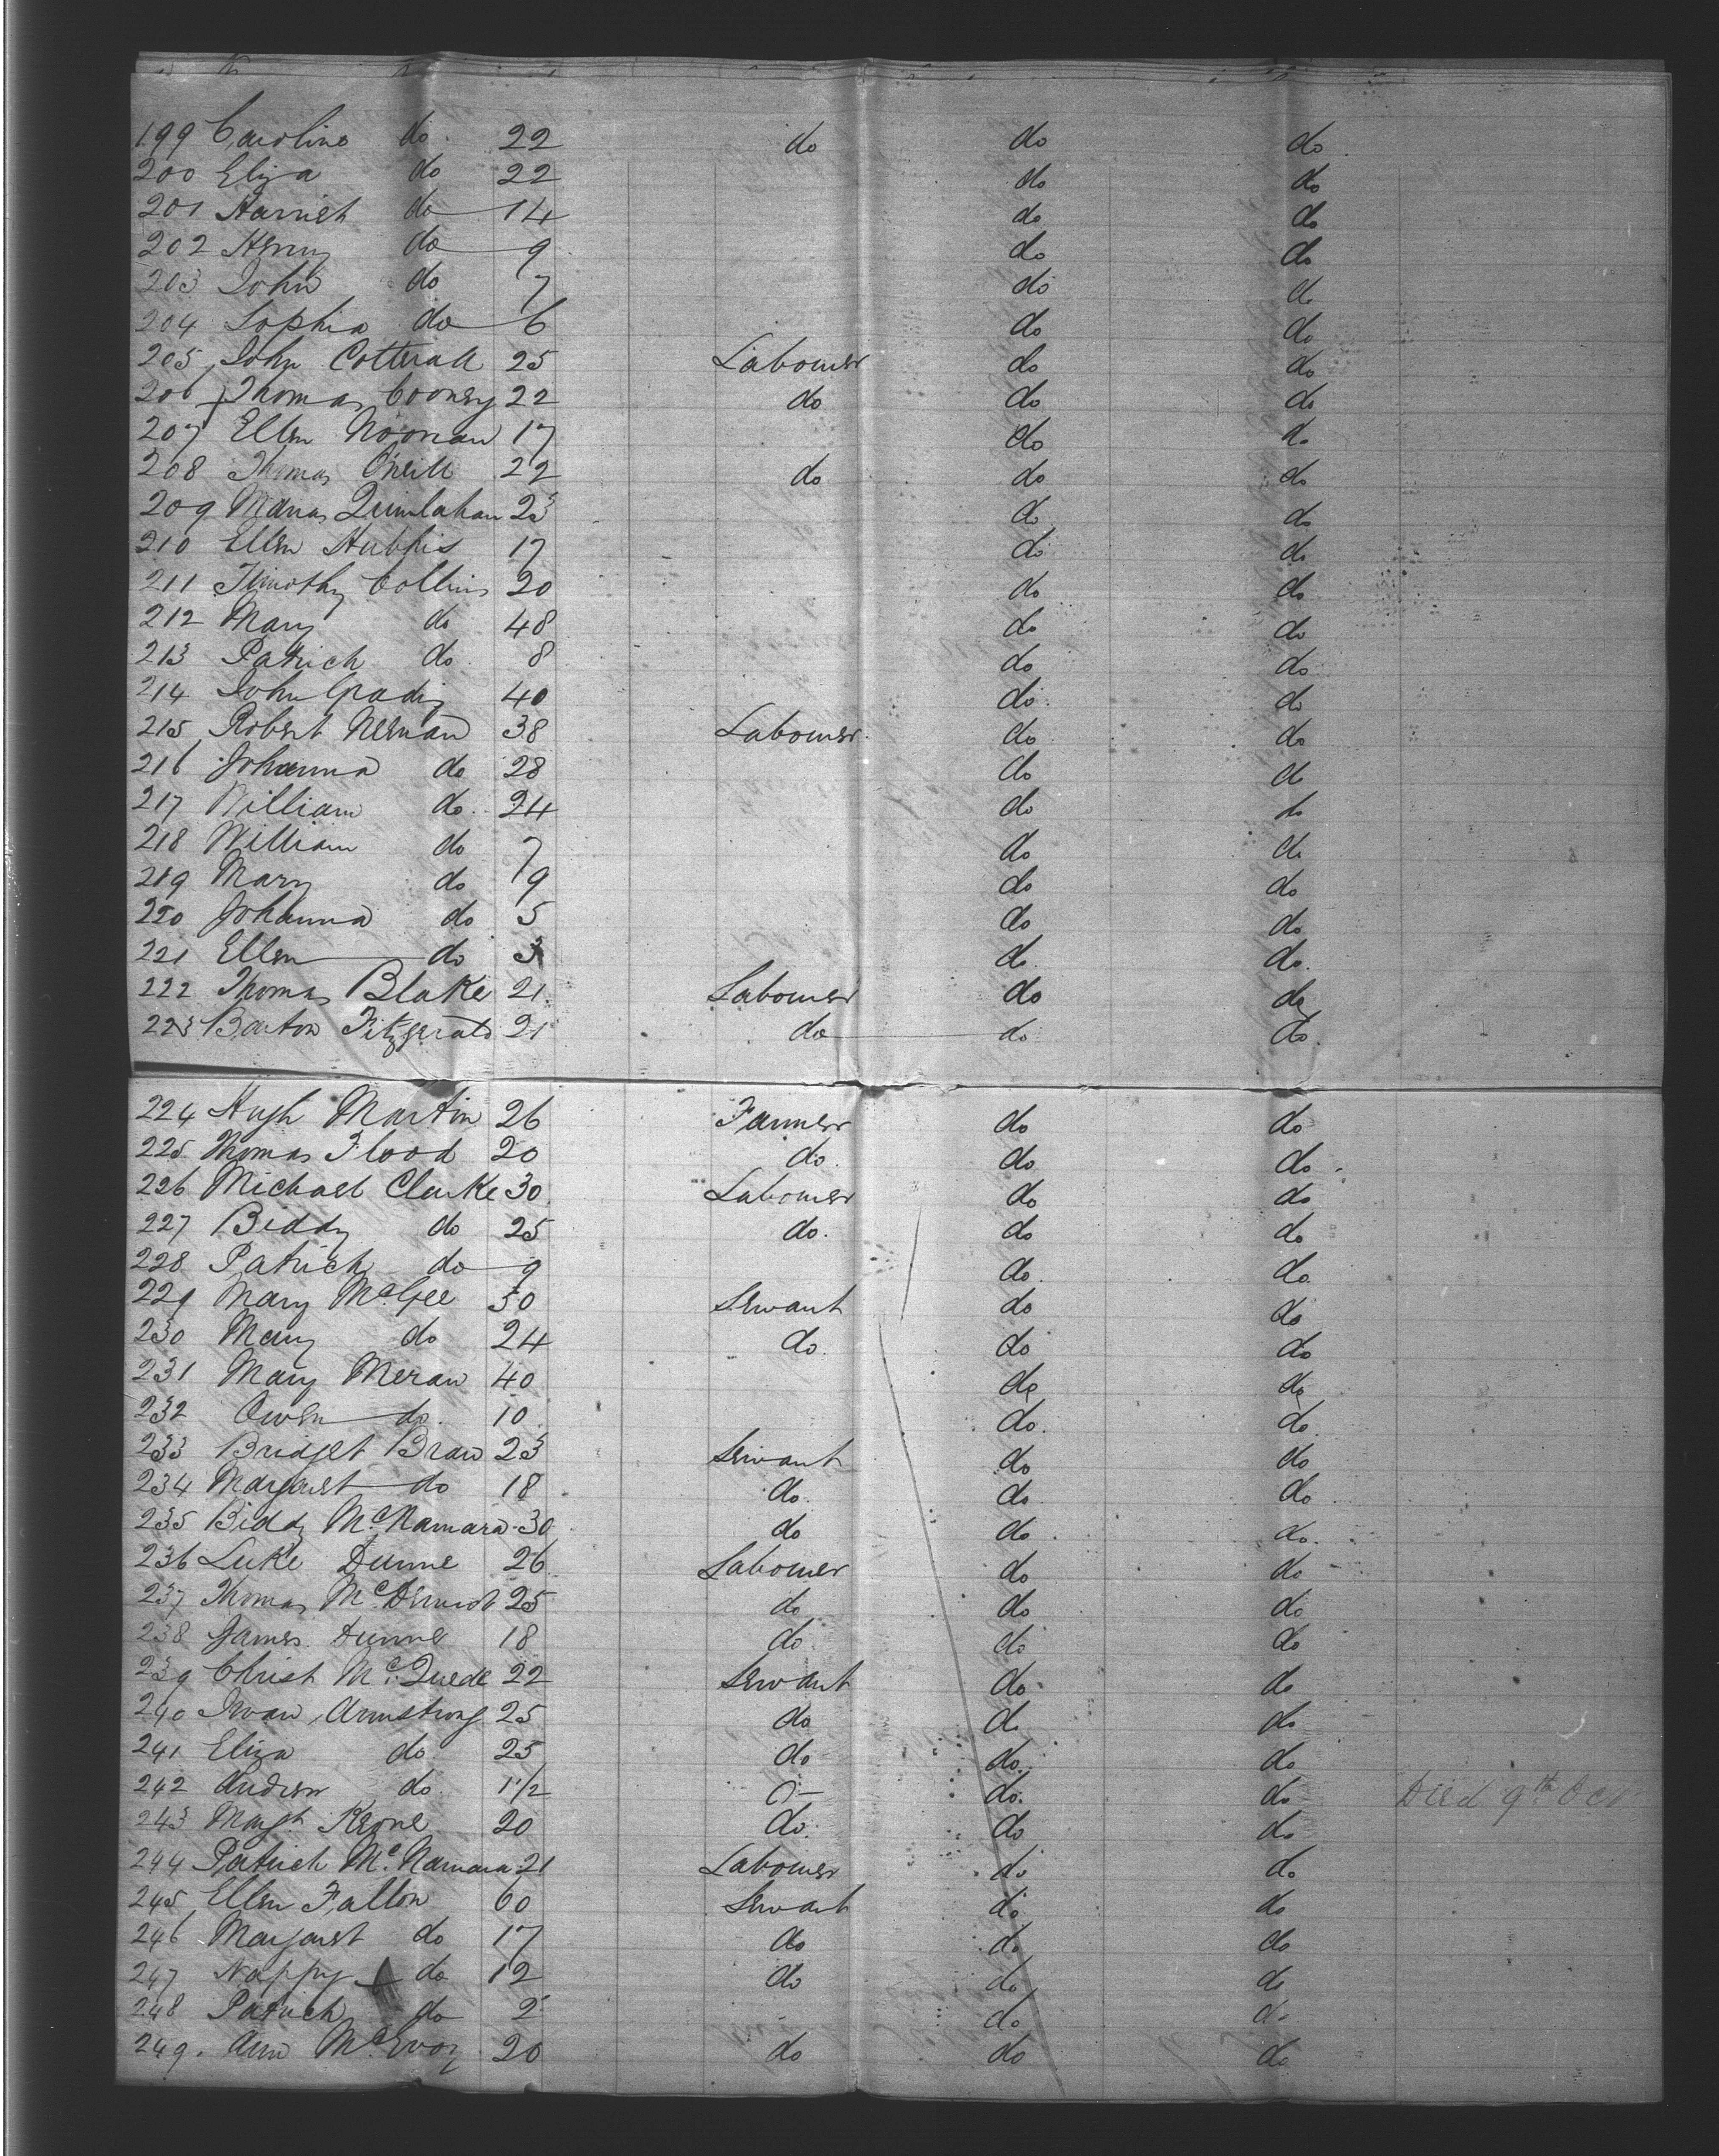 199 Caroline do 22 do do do
200 Eliza do 22 do do
201 Harriet do 14 do do
202 Henry do 9 do do
203 John do 7 do do
204 Sophia do 6 do do
205 John Cotterall 25 Labourer do do
206 Thomas Cooney 22 do do do
207 Ellen Noonan 17 do do
208 Thomas O'Neill 22 do do do
209 Quinlahan 23 do do
210 Ellen 17 do do
211 Timothy Collins 20 do do
212 Mary do 48 do do
213 Patrick do 8 do do
214 John Grady 40 do do
215 Robert 38 Labourer do do
216 Johanna do 28 do do
217 William do 24 do do
218 William do 7 do do
219 Mary do 9 do do
220 Johanna do 5 do do
221 Ellen do 3 do do
222 Thomas Blake 21 Labourer do do
223 Barton Fitzgerald 21 do do do
224 Hugh Martin 26 Farmer do do
225 Thomas Flood 20 do do do
226 Michael Clarke 30 Labourer do do
227 Biddy do 25 do do do
228 Patrick do 9 do do
229 Mary McGee 50 Servant do do
230 Mary do 24 do do do
231 Mary Meran 40 do do
232 Owen do 10 do do
233 Bridget Bran 23 Servant do do
234 Margaret do 18 do do do
235 Biddy McNamara 30 do do do
236 Luke Dunne 26 Labourer do do
237 Thomas McDermot 25 do do do
238 James Dunne 18 do do do
239 Christ McQuede 22 Servant do do
240 Armstrong 25 do do do
241 Eliza do 25 do do do
242 Andrew do 1 1/2 do do Died 9th Oct
243 Margt Keone 20 do do do
244 Patrick McNamara 21 Labourer do do
245 Ellen Fallon 60 Servant do do
246 Margaret do 17 do do do
247 Nappy do 12 do do do
248 Patrick do 2 do do
249. Ann McEvoy 20 do do do